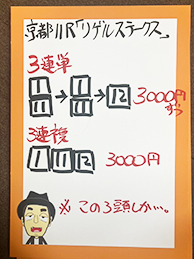 京都11R「リゲルステークス」
3連単
1 11 → 1 11 → 12 3000円ずつ
3連複
1 11 12 3000円
※ この3頭しか…。